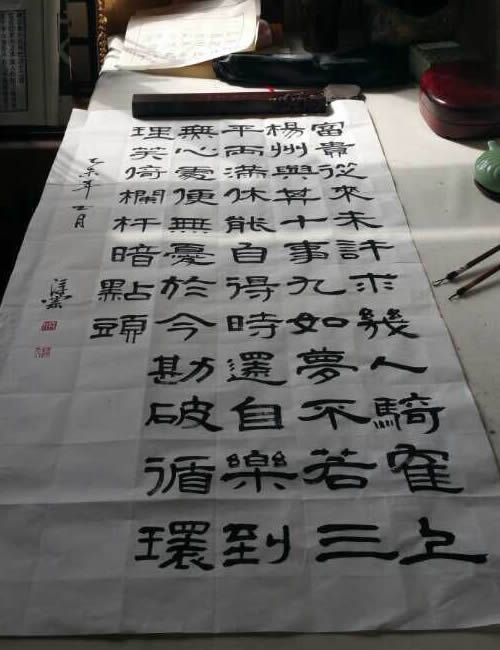 富貴從來未許求幾人騎隺上
楊州與其十事九如夢不若三
平兩滿休能自得時還自樂到
無心處便無憂於今勘破循環
理笑倚欄杆暗點頭
乙未年